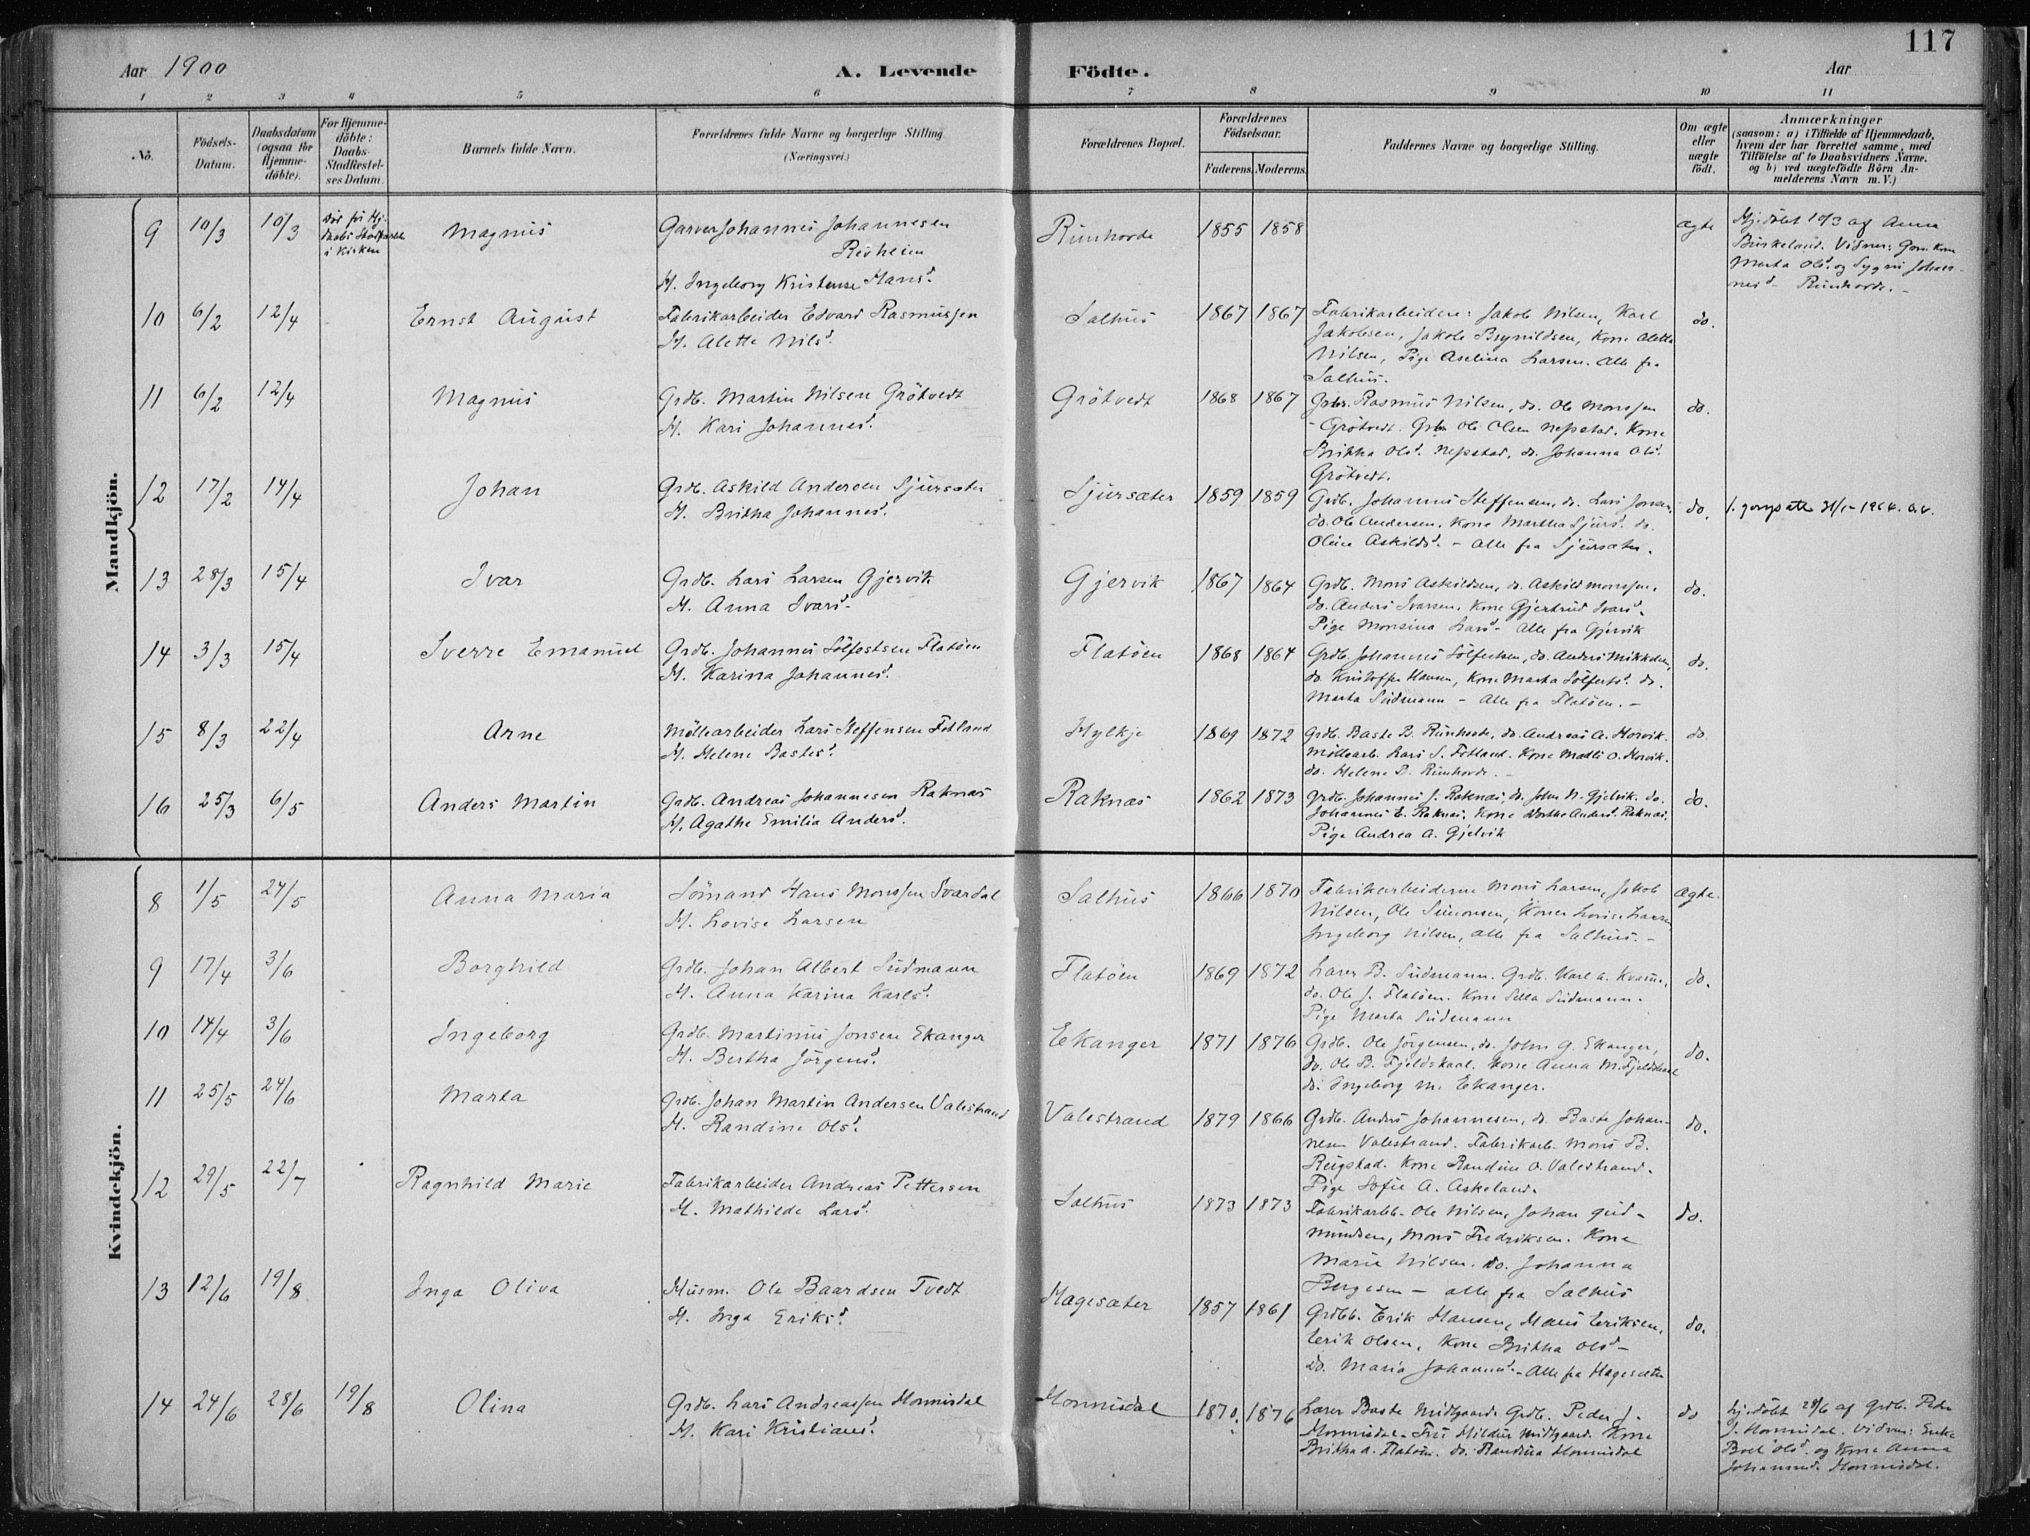 117
Aar 1900
A. Levende
Födte.
Aar
1 2 3 4 5 6 7 8 9 10 11
No.
Födsels-
Datum.
Daabsdatum
(ogsaa for
Hjemme-
döbte).
For Hjemme-
döbte:
Daabs-
Stadfæstel-
ses Datum.
Barnets fulde Navn.
Forældrenes fulde Navne og borgerlige Stilling.
(Næringsvei.)
Forældrenes Bopæl.
Forældrenes
Födselsaar.
Faderens. Moderens.
Faddernes Navne og borgerlige Stilling.
Om ægte
eller
uægte
födt.
Anmærkninger
(saasom: a) i Tilfælde af Hjemmedaab,
hvem der har forrettet samme, med
Tilföielse af to Daabsvidners Navne,
og b) ved uægtefödte Börn An-
melderens Navn m. V.)
Mandkjön.
9 10/3 10/3 död för Hj.
daabs Stadfæstelse
i Kirken
Magnus
Garver Johannes Johannesen
Revheim
H. Ingeborg Kristense Hansd.
Rimhorde 1855 1858
ægte
Hj.döbt 10/3 af Anna
Birkeland. Vidner: Kone
Marta Olsd. og Johan-
nesd. Rimhorde.
10 6/2 12/4 Ernst August
Fabrikarbeider Edvard Rasmussen
H. Alette Nilsd.
Salhus 1867 1867
Fabrikarbeidere: Jakob Nilsen, Karl
Jakobsen, Jakob Brynildsen, Kone Alette
Nilsen, Pige Aselina Larsen. Alle fra
Salhus.
do.
11 6/2 12/4 Magnus
Grdb. Martin Nilsen Grötvedt
H. Kari Johannesd.
Grötvedt 1868 1867
Grbr. Rasmus Nilsen, do. Ole Monssen
- Grötvedt. Grbr. Ole Olsen Nepstad. Kone
Britha Olsd. Nepstad, do. Johanna Olsd.
Grötvedt.
do.
12 17/2 14/4 Johan
Grdb. Askild Andersen Sjursæter
H. Britha Johannesd.
Sjursæter 1859 1859
Grdb. Johannes Steffensen, do. Lars Jonsen,
do. Ole Andersen, Kone Martha Sjursd. do.
Olina Askildsd. - Alle fra Sjursæter.
do.
13 28/3 15/4 Ivar
Grdb. Lars Larsen Gjervik
H. Anna Ivarsd.
Gjervik 1867 1864
Grdb. Mons Askildsen, do. Askild Monssen,
do. Anders Ivarsen. Kone Gjertrud Ivarsd.
Pige Monsina Larsd. Alle fra Gjervik
do.
14 3/3 15/4 Sverre Emanuel
Grdb. Johannes Sölfestsen Flatöen
H. Karina Johannesd.
Flatöen 1868 1864
Grdb. Johannes Sölfestsen, do. Anders Mikkelsen,
do. Kristoffer Hansen, Kone Marta Sölfestsd. do.
Marta Südmann - Alle fra Flatöen.
do.
15 8/3 22/4 Arne
Möllearbeider Lars Steffensen Fotland
H. Helene Bastesd.
Hylkje 1869 1872
Grdb. Baste B. Rimhorde, do. Andreas A. Horvik.
Möllearb. Lars S. Fotland. Kone Madli O. Horvik.
do. Helene B. Rimhorde.
do.
16 25/3 6/5 Anders Martin
Grdb. Andreas Johannesen Raknæs
H. Agathe Emilia Andersd.
Raknæs 1862 1873
Grdb. Johannes J. Raknæs, do. John N. Gjelvik. do.
Johannes E. Raknæs. Kone Dorthe Andersd. Raknæs.
Pige Andrea A. Gjelvik
do.
Kvindekjön.
8 1/5 27/5 Anna Maria
Sömand Hans Monssen Svardal
H. Lovise Larsen
Salhus 1866 1870
Fabrikarbeiderne Mons Larsen, Jakob
Nilsen, Ole Simonsen, Koner Lovise Larsen
Ingeborg Nilsen, alle fra Salhus.
ægte.
9 17/4 3/6 Borghild
Grdb. Johan Albert Südmann
H. Anna Karina Karlsd.
Flatöen 1869 1872
Lærer B. Südmann. Grdb. Karl A. Kvam,
do. Ole J. Flatöen. Kone Sella Südmann.
Pige Marta Südmann
do.
10 14/4 3/6 Ingeborg
Grdb. Martinus Jonsen Ekanger
H. Bertha Jörgensd.
Ekanger 1871 1876
Grdb. Ole Jörgensen, do. John G. Ekanger,
do. Ole B. Fjeldskaal. Kone Anna M. Fjeldskaal
do. Ingeborg M. Ekanger.
do.
11 25/5 24/6 Marta
Grdb. Johan Martin Andersen Valestrand
H. Randine Olsd.
Valestrand 1879 1866
Grdb. Anders Johannesen, do. Baste Johan-
nesen Valestrand. Fabrikarb. Mons B.
Reigstad. Kone Randine O. Valestrand.
Pige Sofie A. Askeland.
do.
12 29/5 22/7 Ragnhild Marie
Fabrikarbeider Andreas Pettersen
H. Mathilde Larsd.
Salhus 1873 1873
Fabrikarbb. Ole Nilsen, Johan Gud-
mundsen, Mons Fredriksen. Kone
Marie Nilsen. do. Johanna
Bergesen - alle fra Salhus
do.
13 12/6 19/8 Inga Oliva
Husm. Ole Baardsen Tvedt
H. Inga Eriksd.
Hagesæter 1857 1861
Grdbb. Erik Hansen, Hans Eriksen,
Erik Olsen, Kone Britha Olsd.
do. Maria Johannesd. - Alle fra Hagesæter
do.
14 24/6 28/6 19/8 Olina
Grdb. Lars Andreassen Monnisdal
H. Kari Kristiansd.
Monnisdal 1870. 1876
Lærer Baste Midtgaard. Grdb. Peder J.
Monnisdal. Fru Hildur Midtgaard. Kone
Britha A. Flatöen. do. Randina Monnisdal
do
Hj.döbt 28/6 af Grdb. Peder
J. Monnisdal. Vidner: Enke
Boel Olsd. og Kone Anna
Johannesd. Monnisdal.